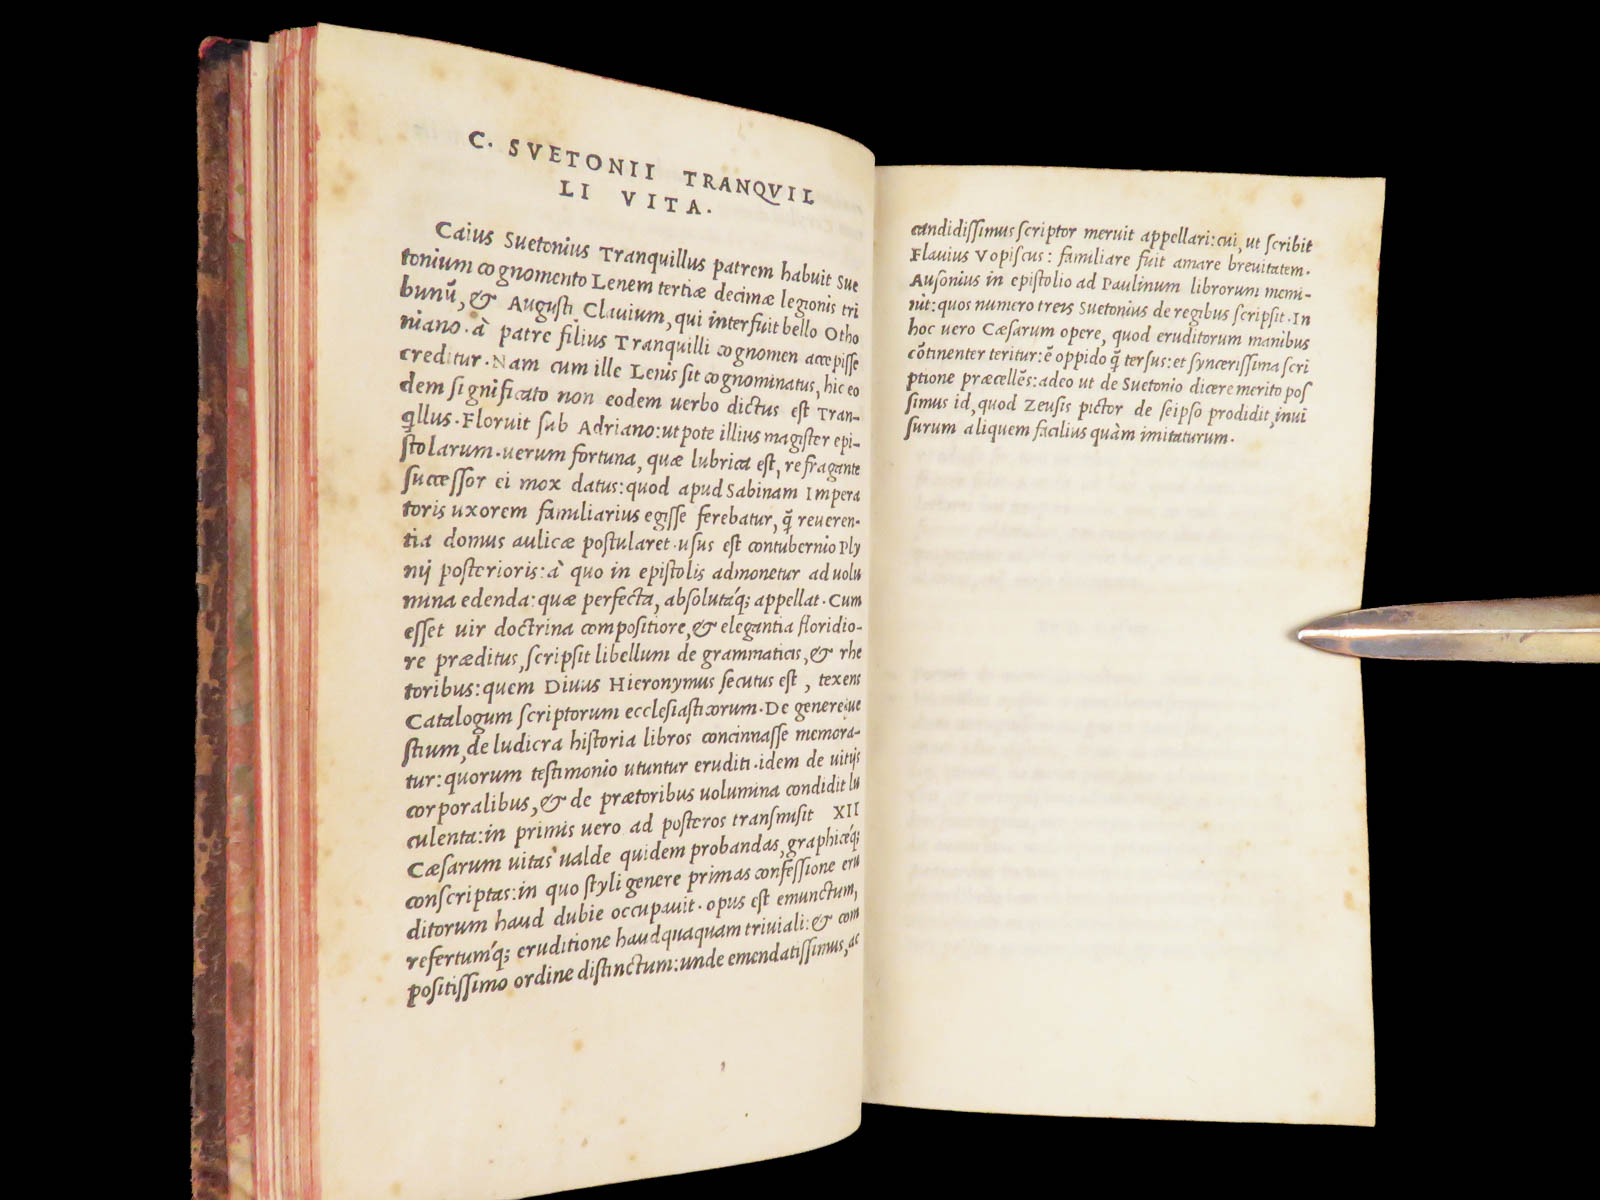 C. SVETONII TRANQVIL
LI VITA.
Caius Suetonius Tranquillus patrem habuit Sue
tonium cognomento Lenem tertiæ decimæ legionis tri
bunũ, & Augusti Clauium, qui interfuit bello Otho
niano. à patre filius Tranquilli cognomen accepisse
creditur. Nam cum ille Lenis sit cognominatus, hic eo
dem significato non eodem uerbo dictus est Tran-
q̃llus. Floruit sub Adriano: ut pote illius magister epi-
stolarum. uerum fortuna, quæ lubrica est, refragante
successor ei mox datus: quod apud Sabinam Impera
toris uxorem familiarius egisse ferebatur, q̃ reueren-
tia domus aulicæ postularet. usus est contubernio Ply
nij posterioris: à quo in epistolis admonetur ad uolu
mina edenda: quæ perfecta, absolutáq; appellat. Cum
esset uir doctrina compositiore, & elegantia floridio-
re præditus, scripsit libellum de grammaticis, & rhe
toribus: quem Diuus Hieronymus secutus est, texens
Catalogum scriptorum ecclesiasticorum. De genere que
stium, de ludicra historia libros concinnasse memora-
tur: quorum testimonio utuntur eruditi. idem de uitijs
corporalibus, & de prætoribus uolumina condidit lu
culenta: in primis uero ad posteros transmisit XII
Cæsarum uitas ualde quidem probandas, graphicéq;
conscriptas: in quo styli genere primas confessione eru
ditorum haud dubie occupauit. opus est emunctum,
refertúmq; eruditione haudquaquam triuiali: & com
positissimo ordine distinctum: unde emendatissimus, ac
candidissimus scriptor meruit appellari: cui, ut scribit
Flauius Vopiscus: familiare fuit amare breuitatem.
Ausonius in epistolio ad Paulinum librorum memi-
nit: quos numero treis Suetonius de regibus scripsit. In
hoc uero Cæsarum opere, quod eruditorum manibus
cõtinenter teritur: ẽ oppido q̃ tersus: et syncerissima scri
ptione præcellẽs: adeo ut de Suetonio dicere merito pos
simus id, quod Zeusis pictor de seipso prodidit, inui
surum aliquem facilius quàm imitaturum.